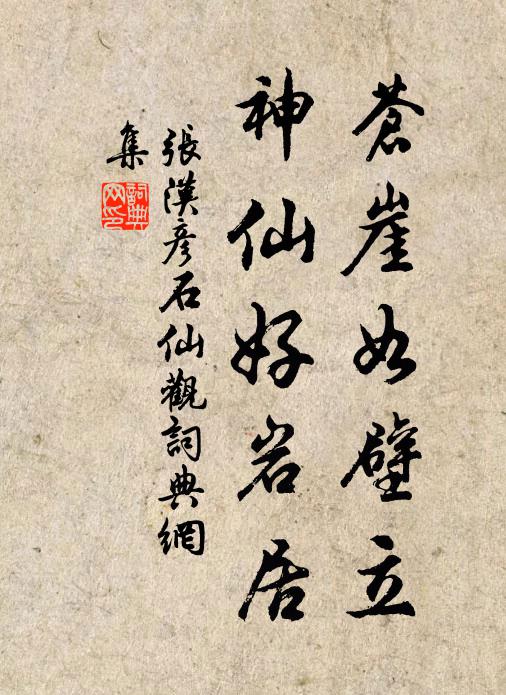 蒼崖如壁立
神仙好岩居
張漢彦石仙觀詞典網
集
詞典
网印